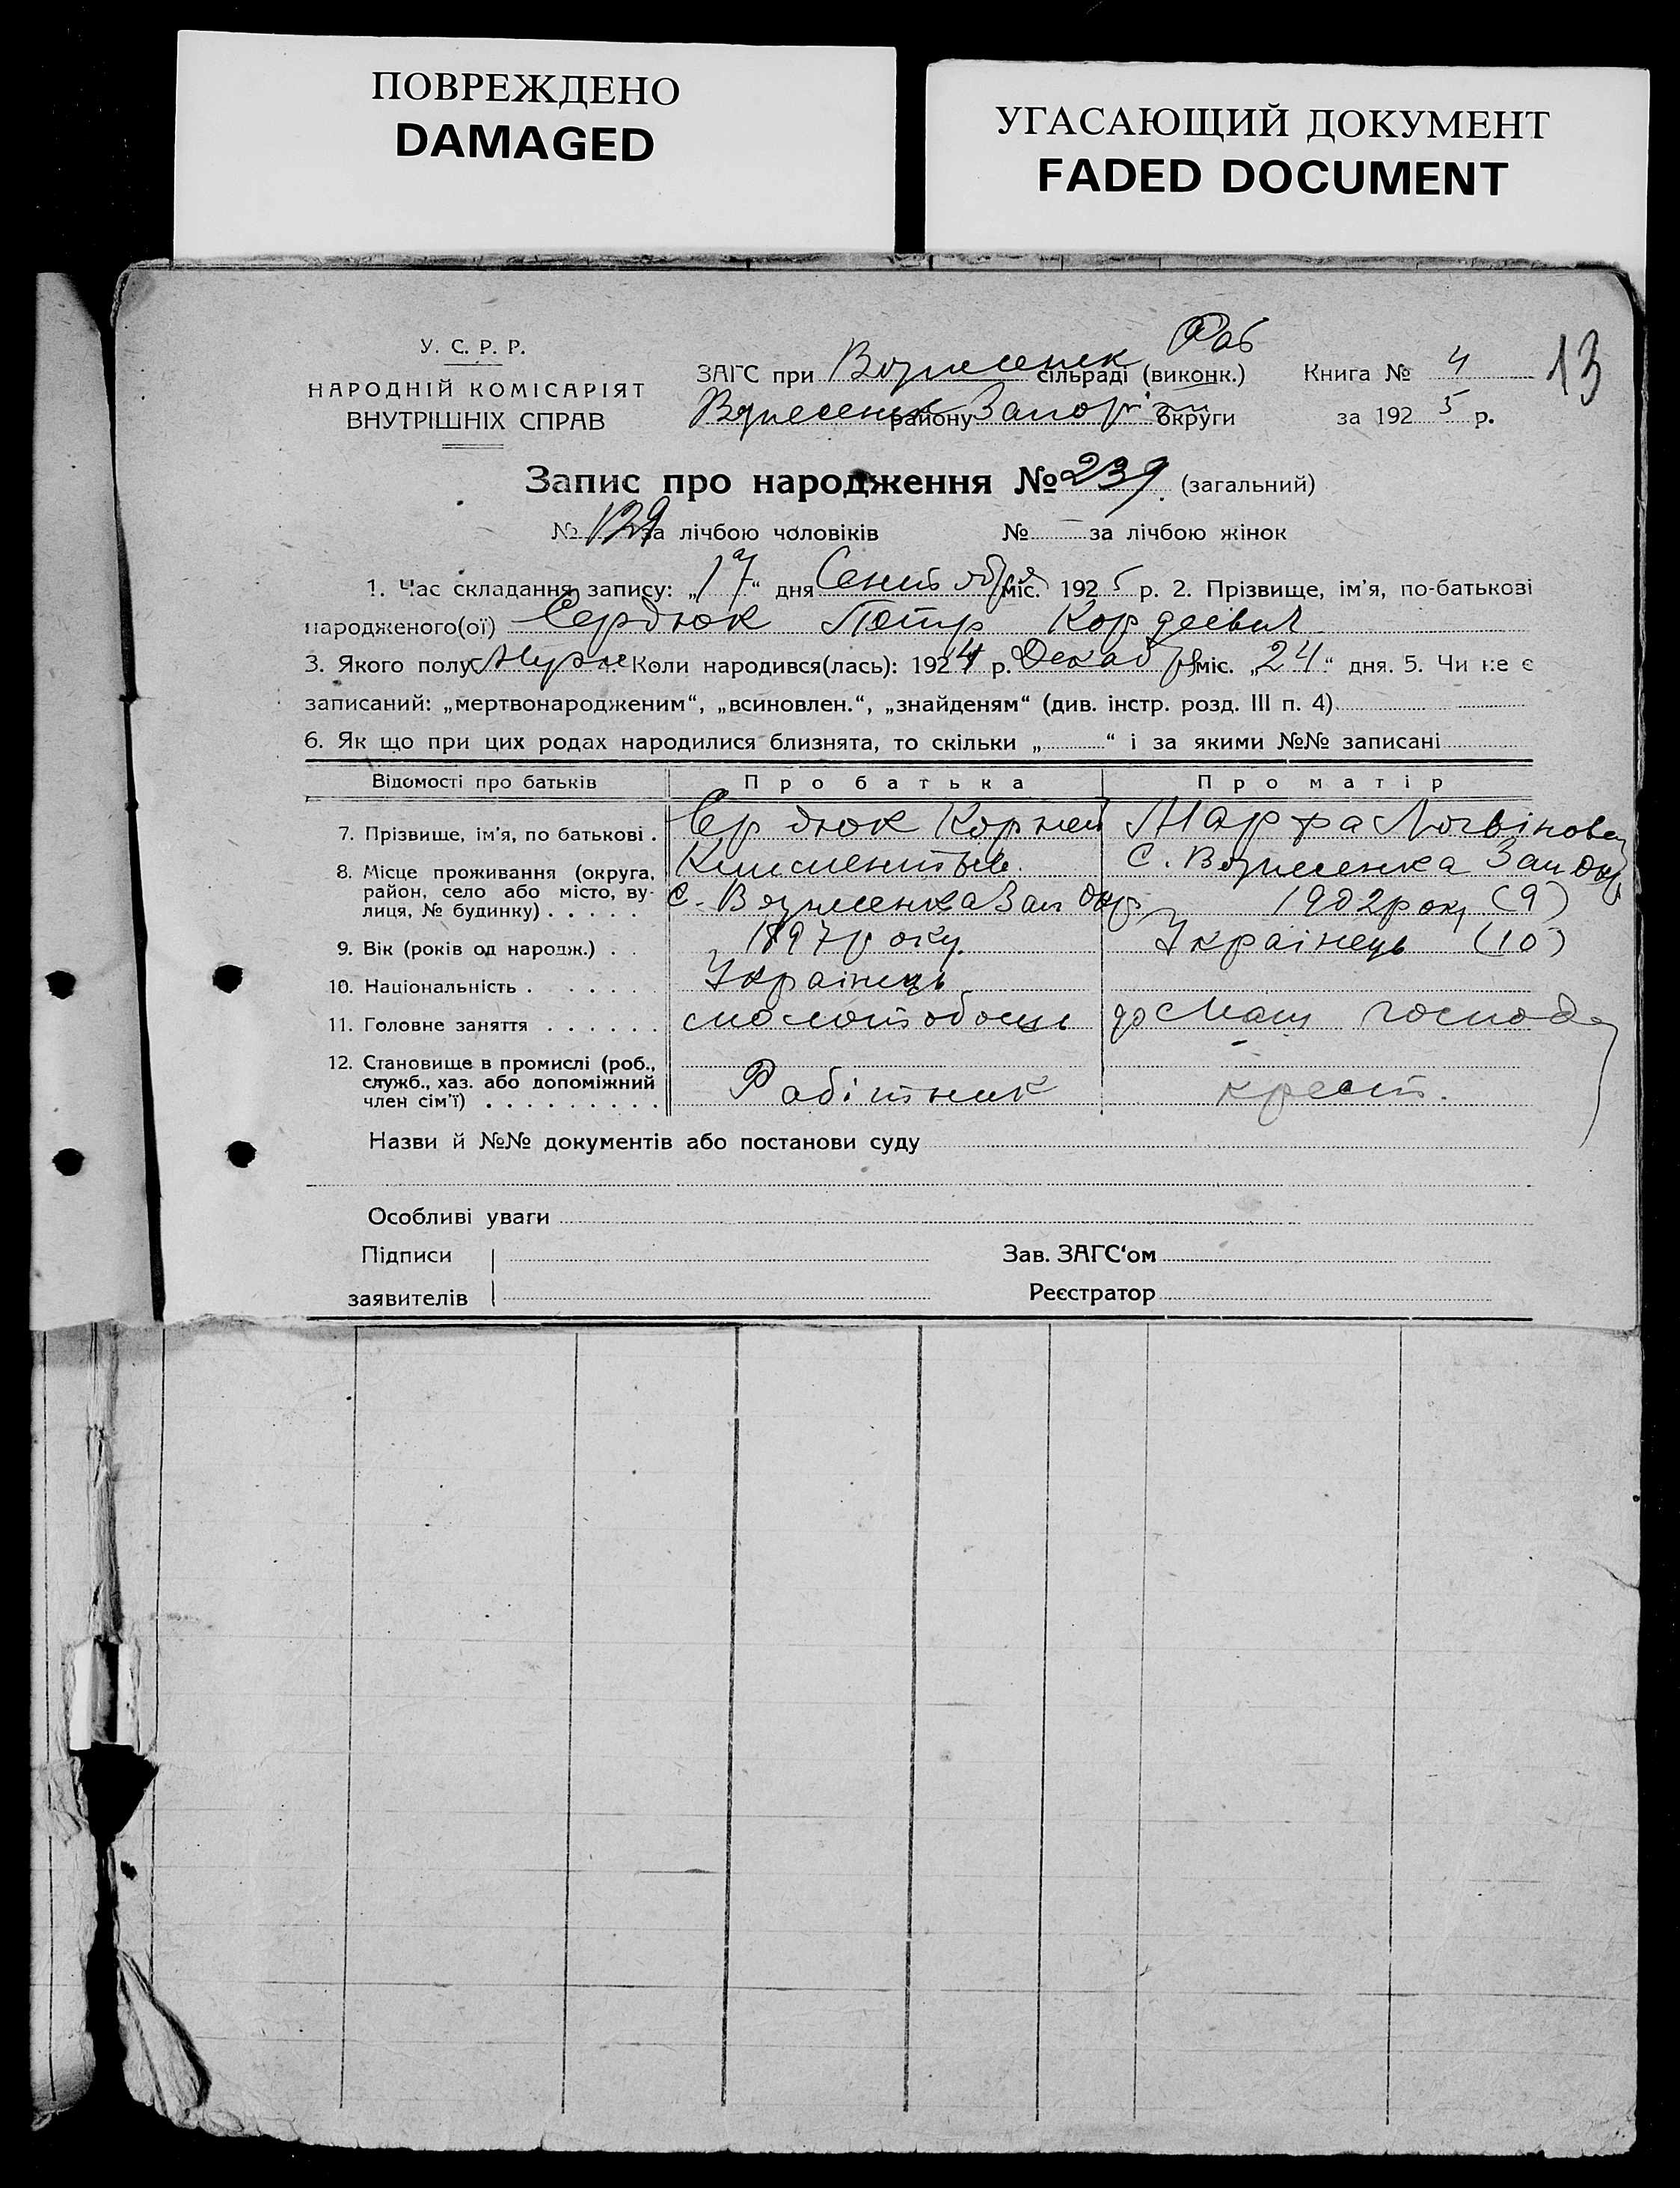 ПОВРЕЖДЕНО
DAMAGED
УГАСАЮЩИЙ ДОКУМЕНТ
FADED DOCUMENT
У. С. Р. Р.
НАРОДНІЙ КОМІСАРІЯТ
ВНУТРІШНІХ СПРАВ
Раб
ЗАГС при Вознесенск сільраді (виконк.)
Вознесенск району Запоріж округи
Книга № 4
за 1925 р.
13
Запис про народження № 239 (загальний)
№ 129 за лічбою чоловіків № — за лічбою жінок
1. Час складання запису: „17“ дня Сентября міс. 1925 р. 2. Прізвище, ім’я, по-батькові
народженого(ої) Сердюк Петр
3. Якого полу Муж 4. Коли народився(лась): 1924 р. Декабря міс. „24“ дня. 5. Чи не є
записаний: „мертвонародженим“, „всиновлен.“, „знайденям“ (див. інстр. розд. III п. 4)
6. Як що при цих родах народилися близнята, то скільки „ “ і за якими №№ записані
Відомості про батьків Про батька Про матір
7. Прізвище, ім’я, по батькові . Сердюк Корней Марфа Логвіновна
Климентьев. С. Вознесенка Зап Окр
8. Місце проживання (округа, район, село або місто, вулиця, № будинку) . . . . . С. Вознесенка Зап Окр 1902 року (9)
9. Вік (років од народж.) . . 1897 року Українець (10)
10. Національність . . . . . . Українець
11. Головне заняття . . . . . . молотобоець до Маш господ
12. Становище в промислі (роб., служб., хаз. або допоміжний член сім’ї) . . . . . . . . . Рабітник крест.
Назви й №№ документів або постанови суду
Особливі уваги
Підписи
заявителів
Зав. ЗАГС‘ом
Реєстратор